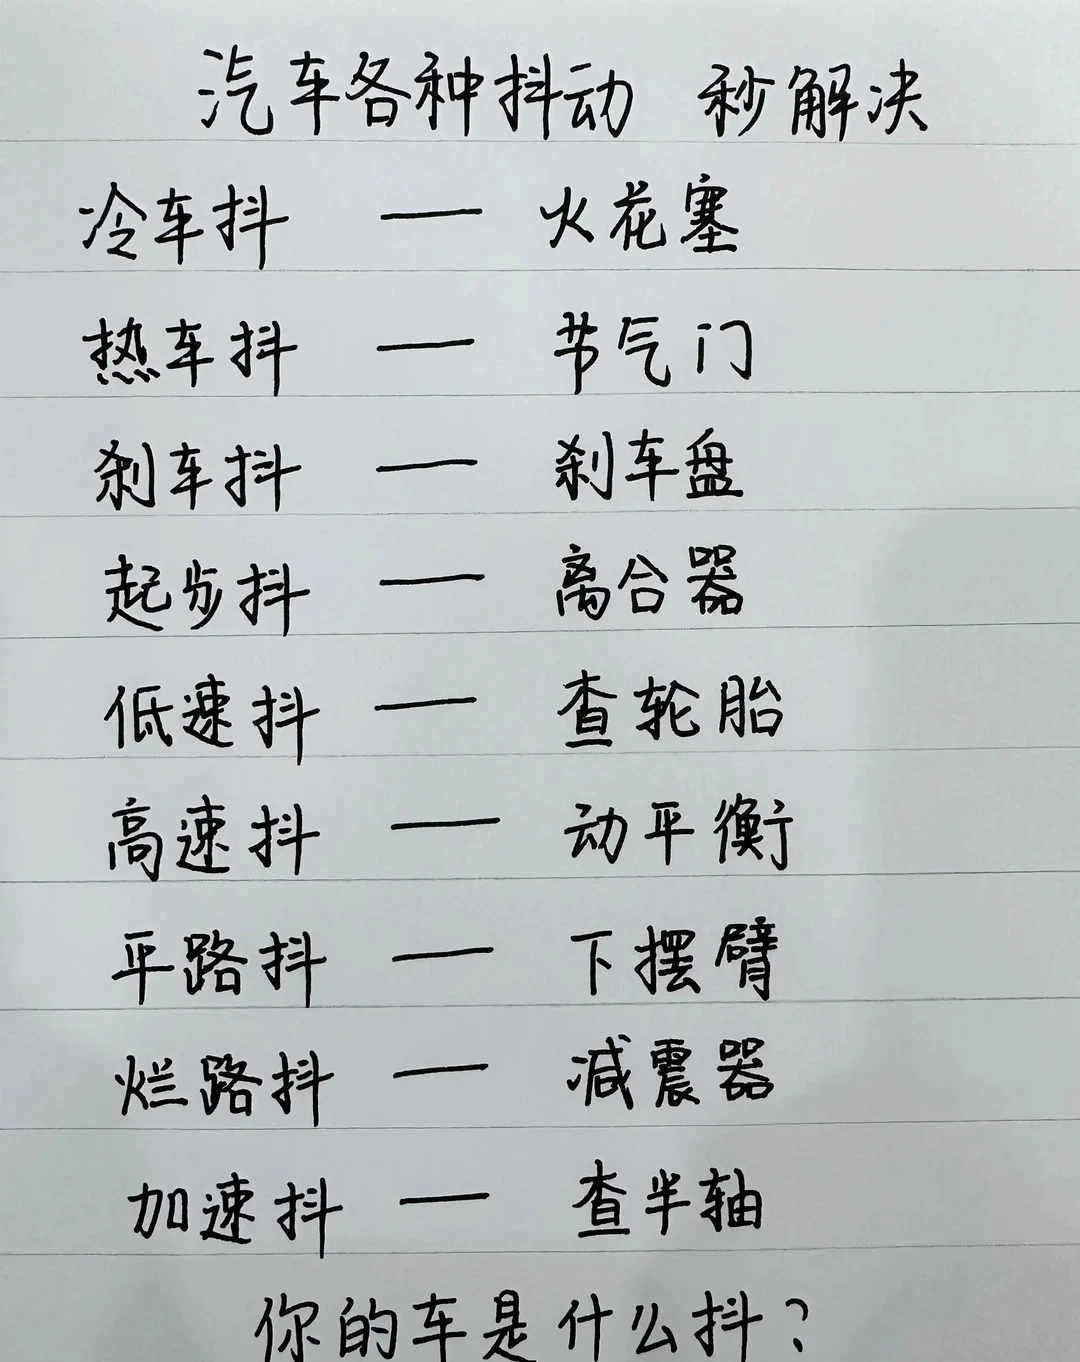 汽车各种抖动 秒解决
冷车抖 — 火花塞
热车抖 — 节气门
刹车抖 — 刹车盘
起步抖 — 离合器
低速抖 — 查轮胎
高速抖 — 动平衡
平路抖 — 下摆臂
烂路抖 — 减震器
加速抖 — 查半轴
你的车是什么抖?